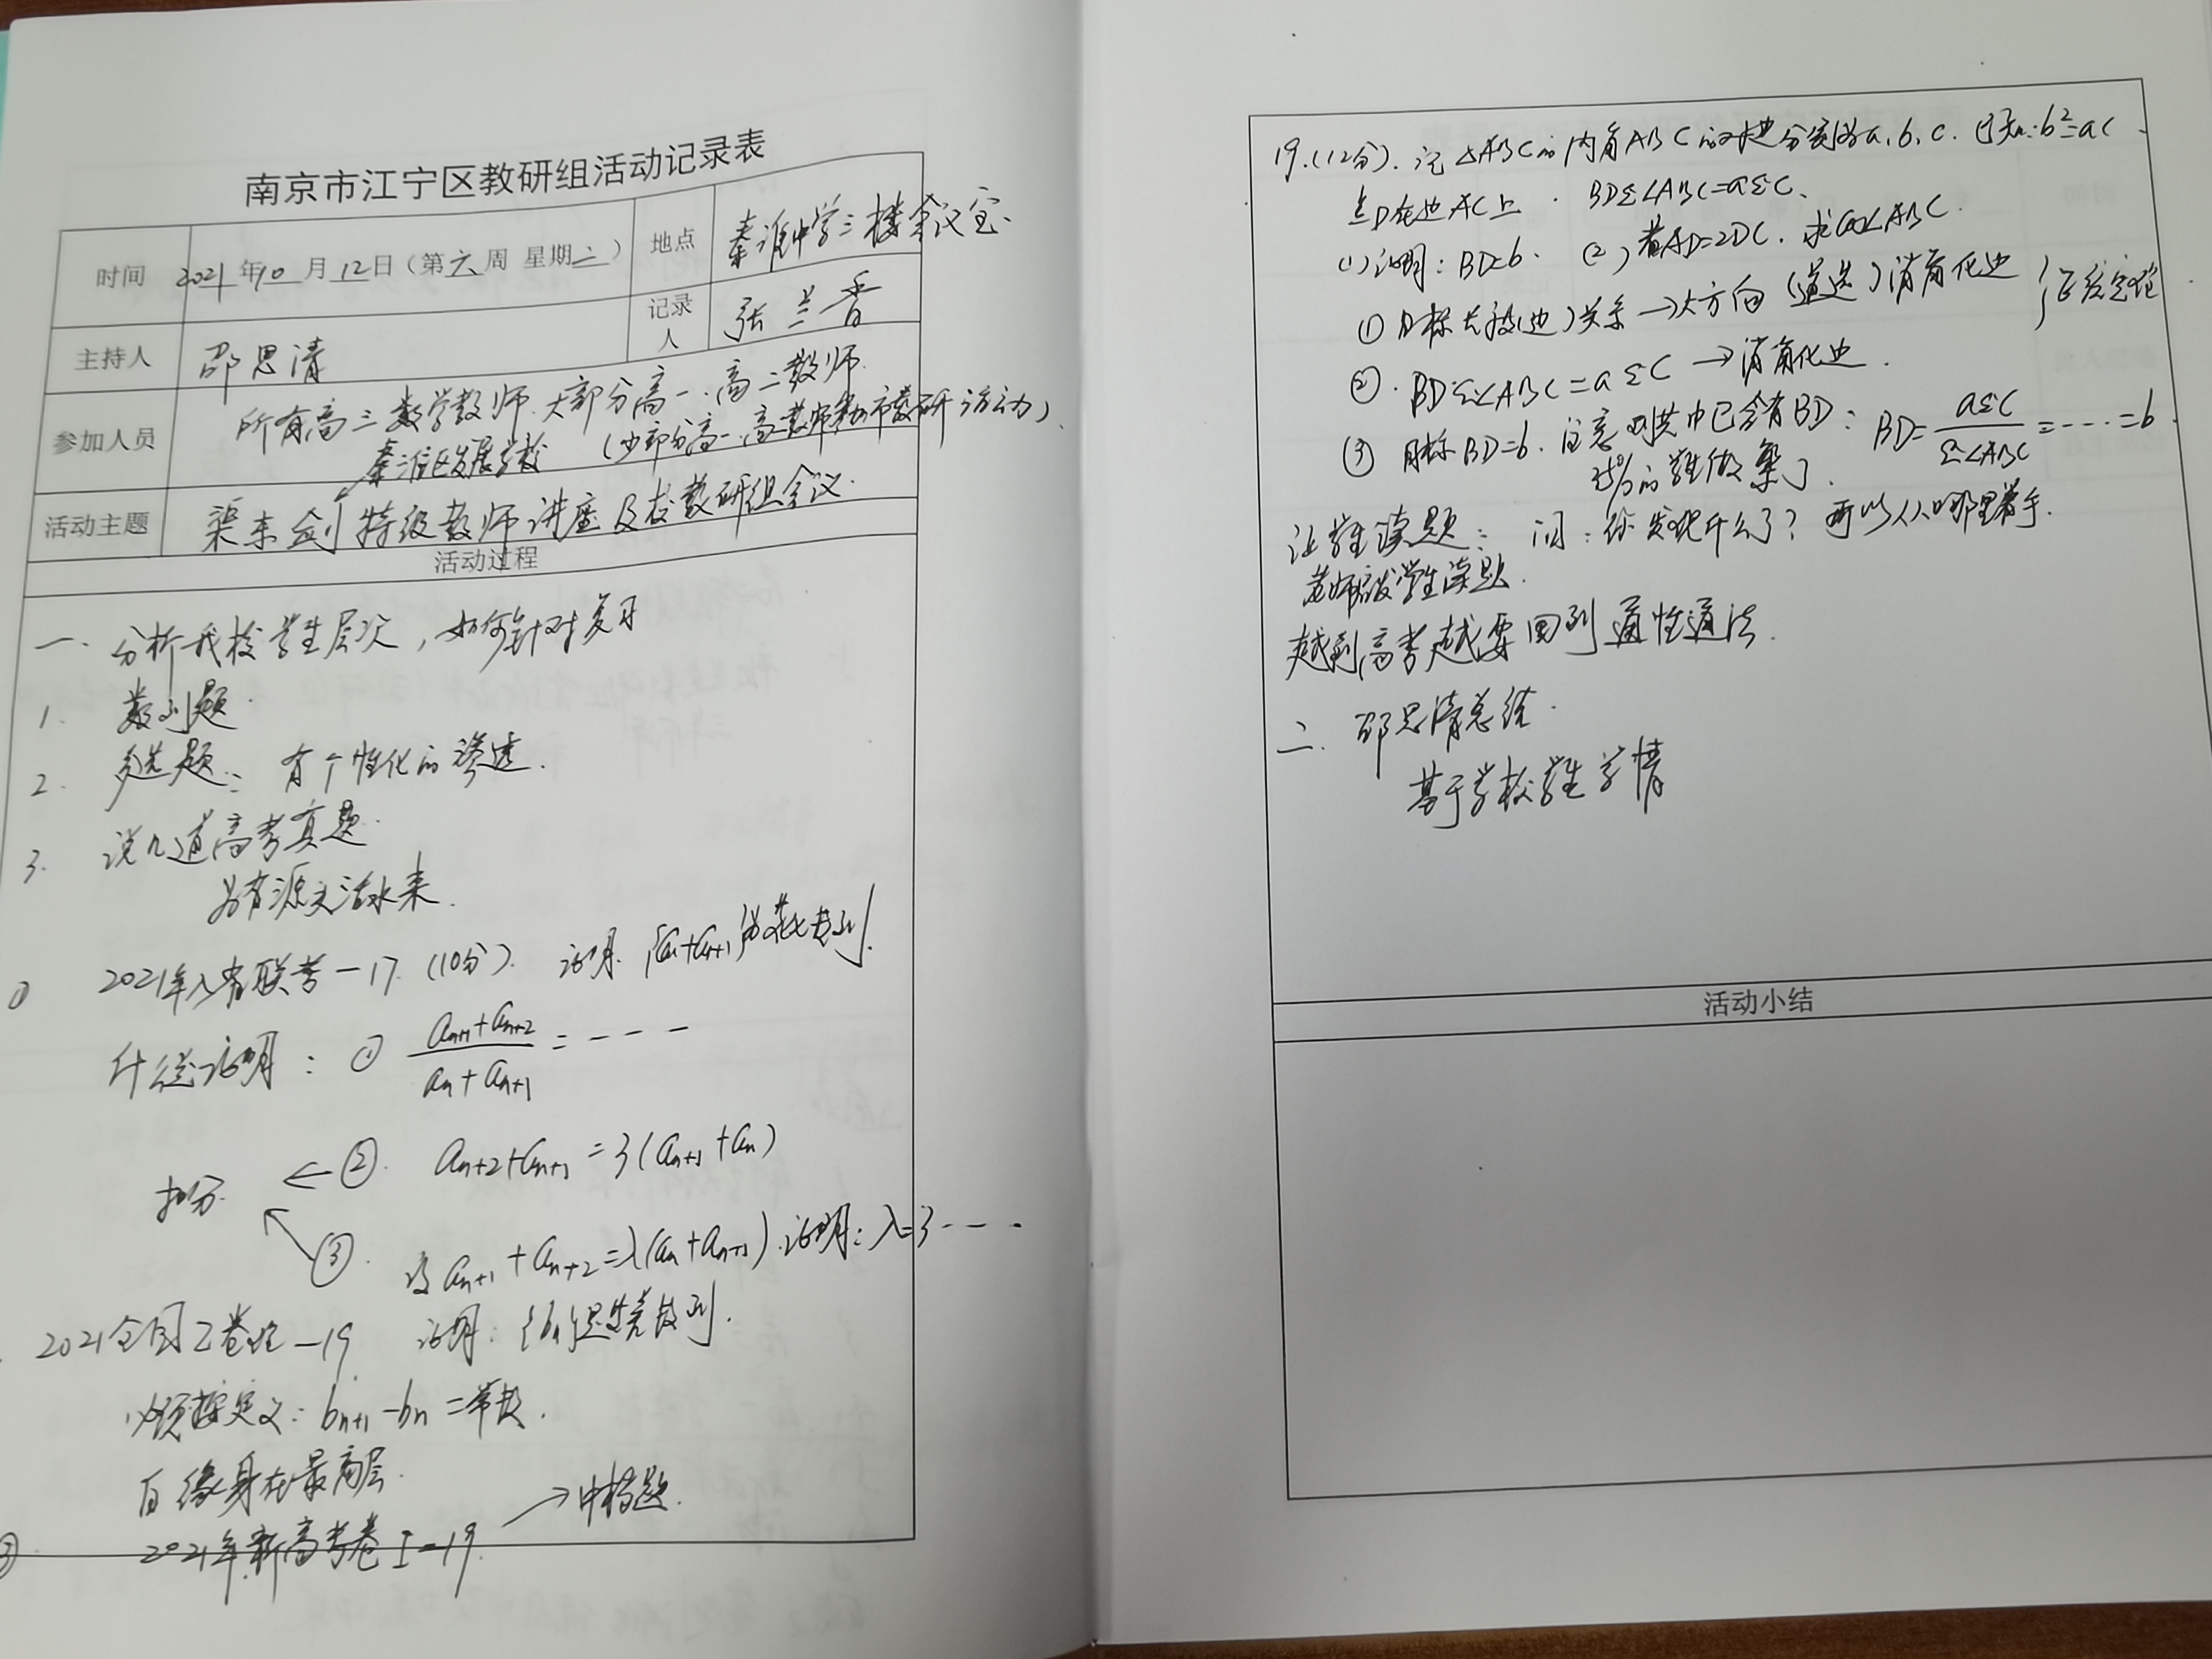 南京市江宁区教研组活动记录表
时间 2021年10月12日（第六周 星期二） 地点 秦淮中学三楼会议室
主持人 邵思清 记录人 张兰香
参加人员 所有高三数学教师、大部分高一、高二教师
（少部分高一、高二教师 市教研活动）
秦淮区发展学校
活动主题 渠东剑特级教师讲座及校教研组会议.
活动过程
一. 分析我校学生层次，如何针对复习
1. 数列题.
2. 多选题：有个性化的渗透.
3. 说几道高考真题.
为有源头活水来.
① 2021年八省联考—17.（10分）. 证明 {an+an+1}为等比数列.
什么证明：① (an+1+an+2)/(an+an+1) = - - -
扣分 ← ②. an+2+an+1=3(an+1+an)
③. 设an+1+an+2=λ(an+an+1).证明：λ=3 - - -
2021全国乙卷理—19 证明：{bn}是等差数列.
必须按定义：bn+1-bn=常数.
自缘身在最高层.
③ 2021年新高考卷I—19. → 中档题.
19.(12分). 记△ABC的内角ABC的对边分别为a、b、c. 已知：b²=ac.
点D在边AC上. BDsin∠ABC=asinC.
(1)证明：BD=b. (2)若AD=2DC. 求cos∠ABC.
① 目标长度(边)关系→大方向 消角化边 } 正弦定理
②. BDsin∠ABC=asinC → 消角化边.
③ 目标BD=b. 注意 其中已含有BD：BD= asinC/sin∠ABC = - - - =b.
25%的学生做繁了.
让学生读题：问：你发现什么了？可以从哪里着手.
老师 学生读题.
越到高考越要回到通性通法.
二. 邵思清总结.
基于学校学生学情
活动小结